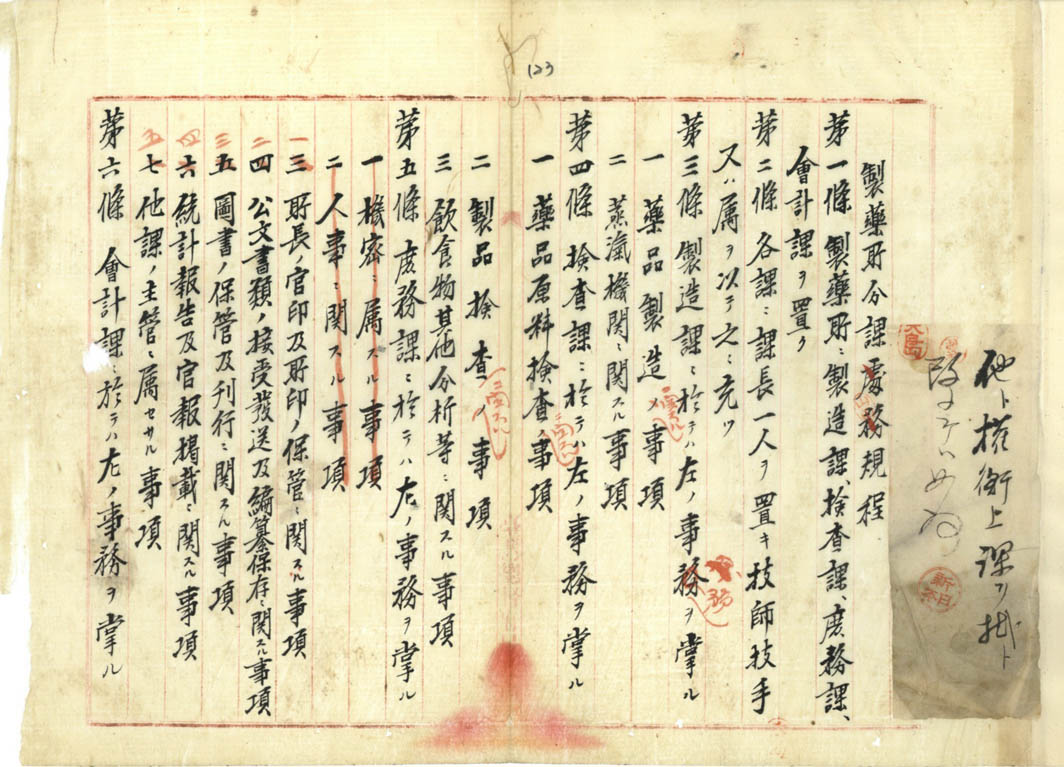 123
他ト権衡上課ヲ掛ト
改
大島
製薬所分課處務規程
第一條 製薬所ニ製造課、検査課、庶務課、
會計課ヲ置ク
第二條 各課ニ課長一人ヲ置キ技師技手
又ハ属ヲ以テ之ニ充ツ
第三條 製造課ニ於テハ左ノ事務ヲ掌ル
一 薬品製造ノ事項
二 蒸滊機関ニ関スル事項
第四條 検査課ニ於テハ左ノ事務ヲ掌ル
一 薬品原料検査ノ事項
二 製品検査ノ事項
三 飲食物其他分析等ニ関スル事項
第五條 庶務課ニ於テハ左ノ事務ヲ掌ル
一 機密ニ属スル事項
二 人事ニ関スル事項
一 三 所長ノ官印及所印ノ保管ニ関スル事項
二 四 公文書類ノ接受發送及編纂保存ニ関スル事項
三 五 圖書ノ保管及刊行ニ関スル事項
四 六 統計報告及官報掲載ニ関スル事項
五 七 他課ノ主管ニ属セサル事項
第六條 會計課ニ於テハ左ノ事務ヲ掌ル